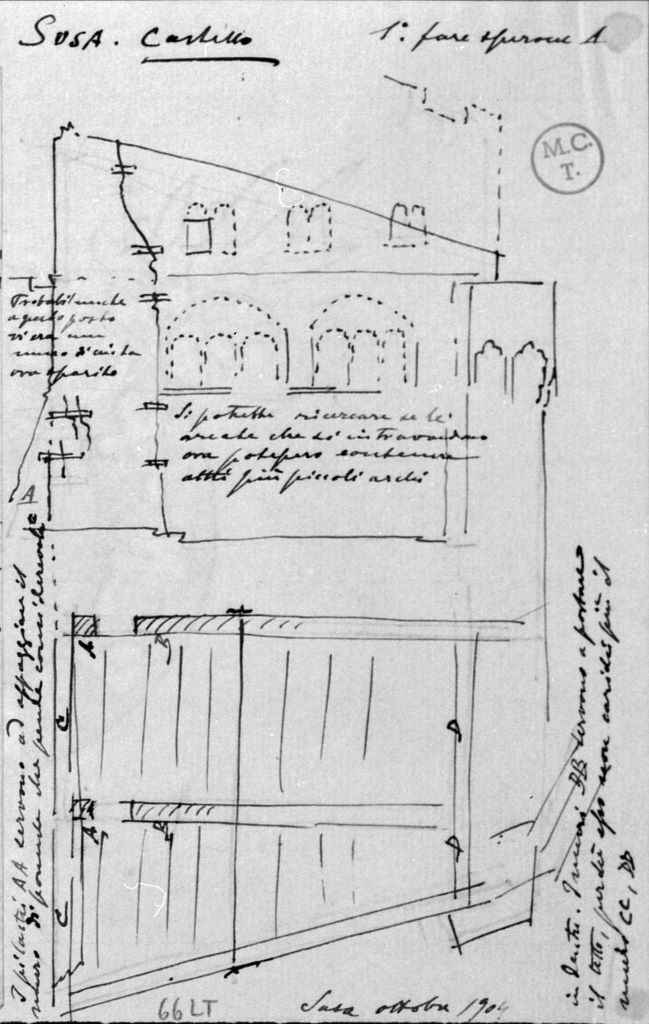 SUSA. Castello
1º: fare sperone A
M.C.
T.
Probabilmente
a questo posto
vi era un
muro di cinta
ora sparito
Si potrebbe ricercare se le
arcate che si intravvedono
ora potessero contenere
altri più piccoli archi
A
A
B
C
D
A
B
C
D
I pilastri AA servono ad appoggiare il
muro di ponente che pende considerevole
in dentro. I muri BB servono a portare
il tetto, perchè esso non carichi più il
muro CC, DD
66 LT
Susa ottobre 1904